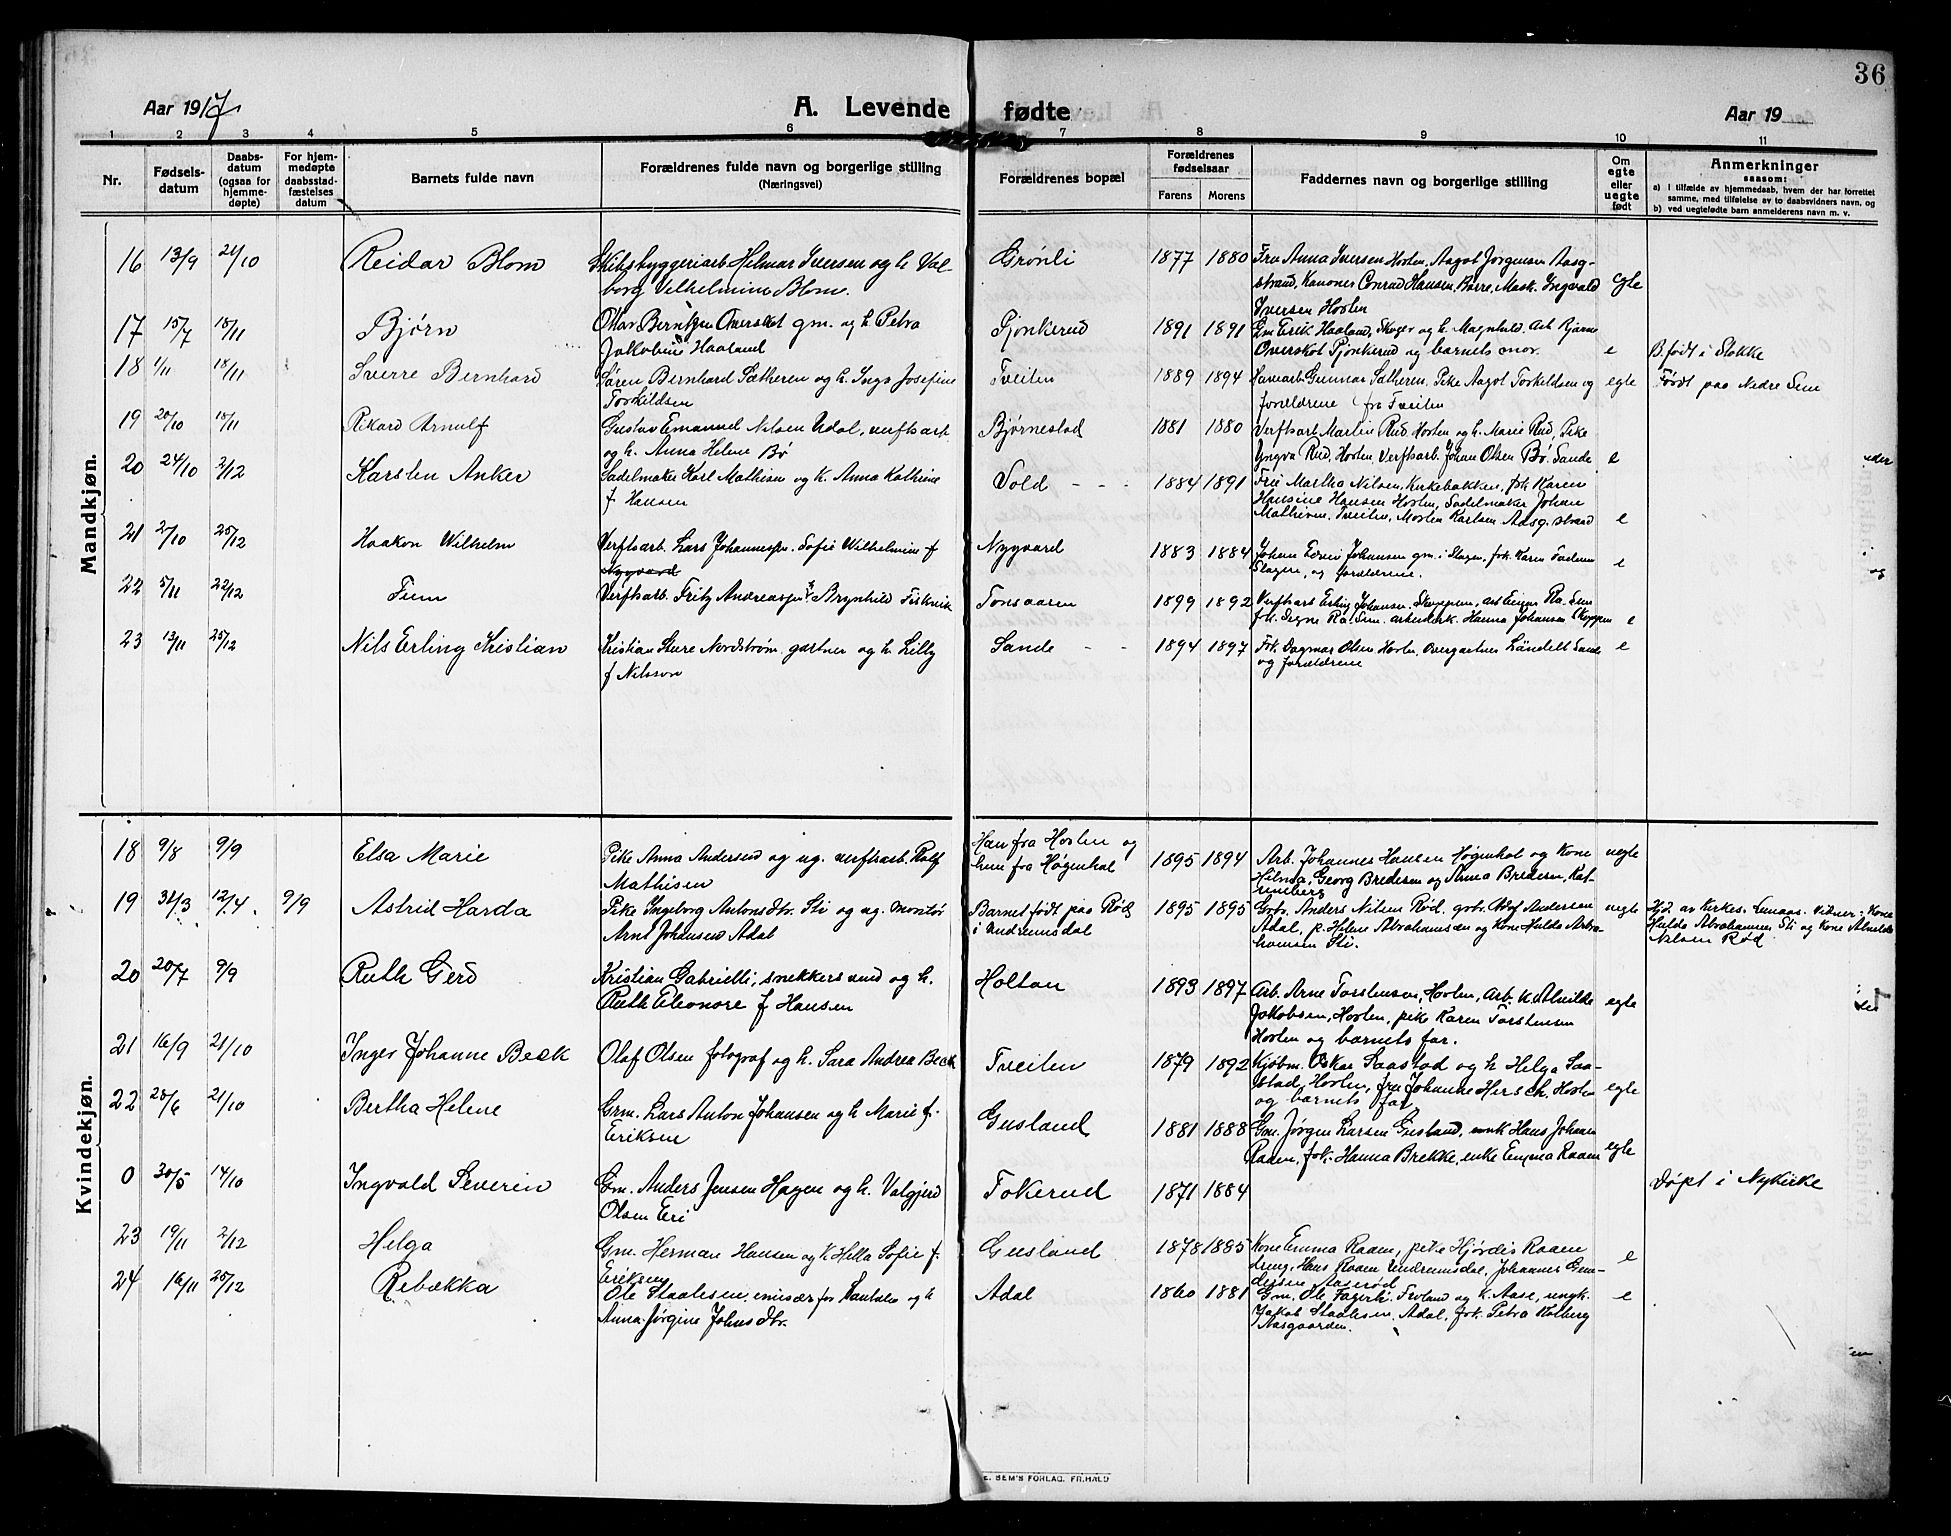 36
Aar 1917
A. Levende fødte
Aar 19
1 2 3 4 5 6 7 8 9 10 11
Nr.
Fødsels-
datum
Daabs-
datum
(ogsaa for
hjemme-
døpte)
For hjem-
medøpte
daabsstad-
fæstelses
datum
Barnets fulde navn
Forældrenes fulde navn og borgerlige stilling
(Næringsvei)
Forældrenes bopæl
Forældrenes
fødselsaar
Farens Morens
Faddernes navn og borgerlige stilling
Om
egte
eller
uegte
født
Anmerkninger
saasom:
a) i tilfælde av hjemmedaab, hvem der har forrettet
samme, med tilføielse av to daabsvidners navn, og
b) ved uegtefødte barn anmelderens navn m. v.
Mandkjøn.
16 13/9 21/10 Reidar Blom
Skibsbyggeriarb Helmar Iversen og h. Val-
borg Vilhelmine Blom.
Grønli 1877 1880
Fru Anna Iversen Horten, Aagot Jørgensen Aasg-
strand, Kanoner Conrad Hansen, Borre, Mask. Ingvald
Iversen Horten
egte
17 15/7 18/11 Bjørn
Olav Berntzen Overskot gm. og h. Petra
Jakobine Haaland
Pjonkerud 1891 1891
Gm Erik Haaland, Skoger og h. Magnhild. Arb Bjarne
Overskot Pjonkerud og barnets mor.
e
B. født i Stokke
18 1/11 18/11 Sverre Bernhard
Søren Bernhard Sætheren og h. Inga Josefine
Torkildsen
Tveiten 1889 1894
Havearb Gunnar Sætheren, Pike Aagot Torkildsen og
forældrene fra Tveiten
egte
Født paa Nedre Sem
19 20/10 18/11 Rikard Arnulf
Gustav Emanuel Nilsen Udal, verftsarb
og h. Anna Helene Bø
Bjørnestad 1881 1880
Verftsarb Martin Rud, Horten og h. Marie Rud, Pike
Yngva Rud, Horten, Verftsarb. Johan Olsen Bø. Sande
e
20 24/10 2/12 Karsten Anker
Sadelmaker Karl Mathisen og h. Anna Kathrine
f. Hansen
Vold 1884 1891
Fru Martha Nilsen, Kirkebakken, frk Karen
Hansine Hansen Horten, Sadelmaker Johan
Mathisen, Tveiten, Morten Karlsen Aasg.strand
e
21 27/10 25/12 Haakon Wilhelm
Verftsarb. Lars Johannessen. Sofie Wilhelmine f
Nygaard
Nygaard 1883 1884
Johan Edvin Johansen gm. i Slagen, frk. Karen
Slagen, og forældrene.
e
22 5/11 22/12 Finn
Verftsarb. Fritz Andreassen & Brynhild Fiskvik
Tonsaaren 1899 1892
Verftsarb Erling Johansen. Skoppum, arb Einar Ra. Sem
frk. Signe Ra. Sem. arbeiderk. Hanna Johansen Skoppum
e
23 13/11 25/12 Nils Erling Kristian
Kristian Sture Nordstrøm gartner og h. Lilly
f Nilsson
Sande 1894 1897
Frk. Dagmar Olsen Horten, Overgartner Løndelt Sande
og forældrene
e
Kvindekjøn.
18 9/8 9/9 Elsa Marie
Pike Anna Andersen og ug. verftsarb. Rolf
Mathisen
Han fra Horten og
hun fra Høgenhal
1895 1894
Arb. Johannes Hansen Høgenhal og Kone
Hilma, Georg Bredesen og Anna Bredesen, Kat-
rineberg
uegte
19 31/3 12/4 9/9 Astrid Harda
Pike Ingeborg Antonsdtr. Sti og ug. montør
Arne Johansen Adal
Barnet født paa Rød
i Undrumsdal
1895 1895
Grbr. Anders Nilsen Rød. grbr. Adof Andersen
Adal, p. Helene Abrahamsen og Kone Hulda Abra-
hamsen Sti.
uegte
Hjd. av Kirkes. Linaas. Vidner: Kone
Hulda Abrahamsen Sti og Kone Alvilde
Nilsen Rød
20 20/7 9/9 Ruth Gerd
Kristian Gabrielli, snekkersvend og h.
Ruth Eleonore f Hansen
Holtan 1893 1897
Arb. Arne Torstensen, Horten, Arb. K. Alvilde
Jakobsen, Horten, pike Karen Torstensen
Horten og barnets far.
egte
21 16/9 21/10 Inger Johanne Beck
Olaf Olsen fotograf og h. Sara Andrea Beck
Tveiten 1879 1892
Kjøbm. Oskar Saastad og h Helga Saa-
stad, Horten, fru Johanne Hersch, Horten
og barnets far
egte
22 28/6 21/10 Bertha Helene
Grm. Lars Anton Johansen og h Marie f.
Eriksen
Gusland 1881 1888
Gm. Jørgen Larsen Gusland, enk Hans Johan
Raaen, frk. Hanna Brekke, enke Emma Raaen
egte
0 30/5 14/10 Ingvald Severin
Gm. Anders Jensen Hagen og h. Valgjerd
Olsen Eri
Tokerud 1871 1884
Døpt i Nykirke
23 19/11 2/12 Helga
Gm. Herman Hansen og h Hella Sofie f.
Eriksen
Gusland 1878 1885
Kone Emma Raaen, pike Hjørdis Raaen
dreng, Hans Raaen Undrumsdal, Johannes Gun-
dersen Aaserød
e
24 16/11 25/12 Rebækka
Ole Staalesen, emisær for Santalm og h
Anna Jørgine Johnsdtr.
Adal 1860 1881
Gm. Ole Fagerli. Froland og h. Aase, ungk.
Jakob Staalesen, Adal, frk. Petra Kolberg
Aasgaarden.
e
E. SEM'S FORLAG. FR.HALD